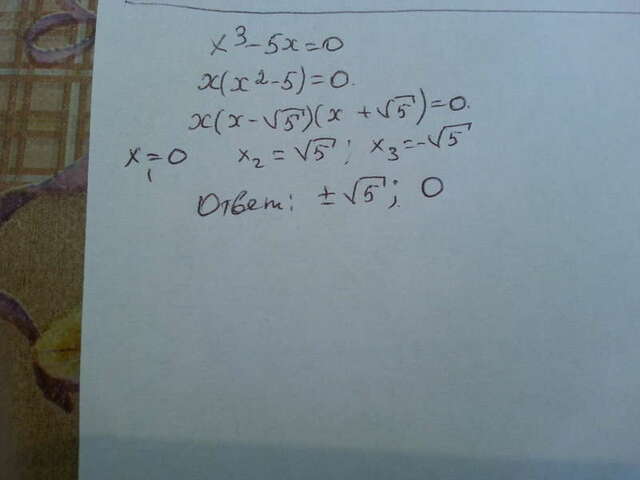 x³ - 5x = 0
x(x² - 5) = 0.
x(x - √5)(x + √5) = 0.
x₁ = 0 x₂ = √5 ; x₃ = -√5
Ответ: ±√5 ; 0